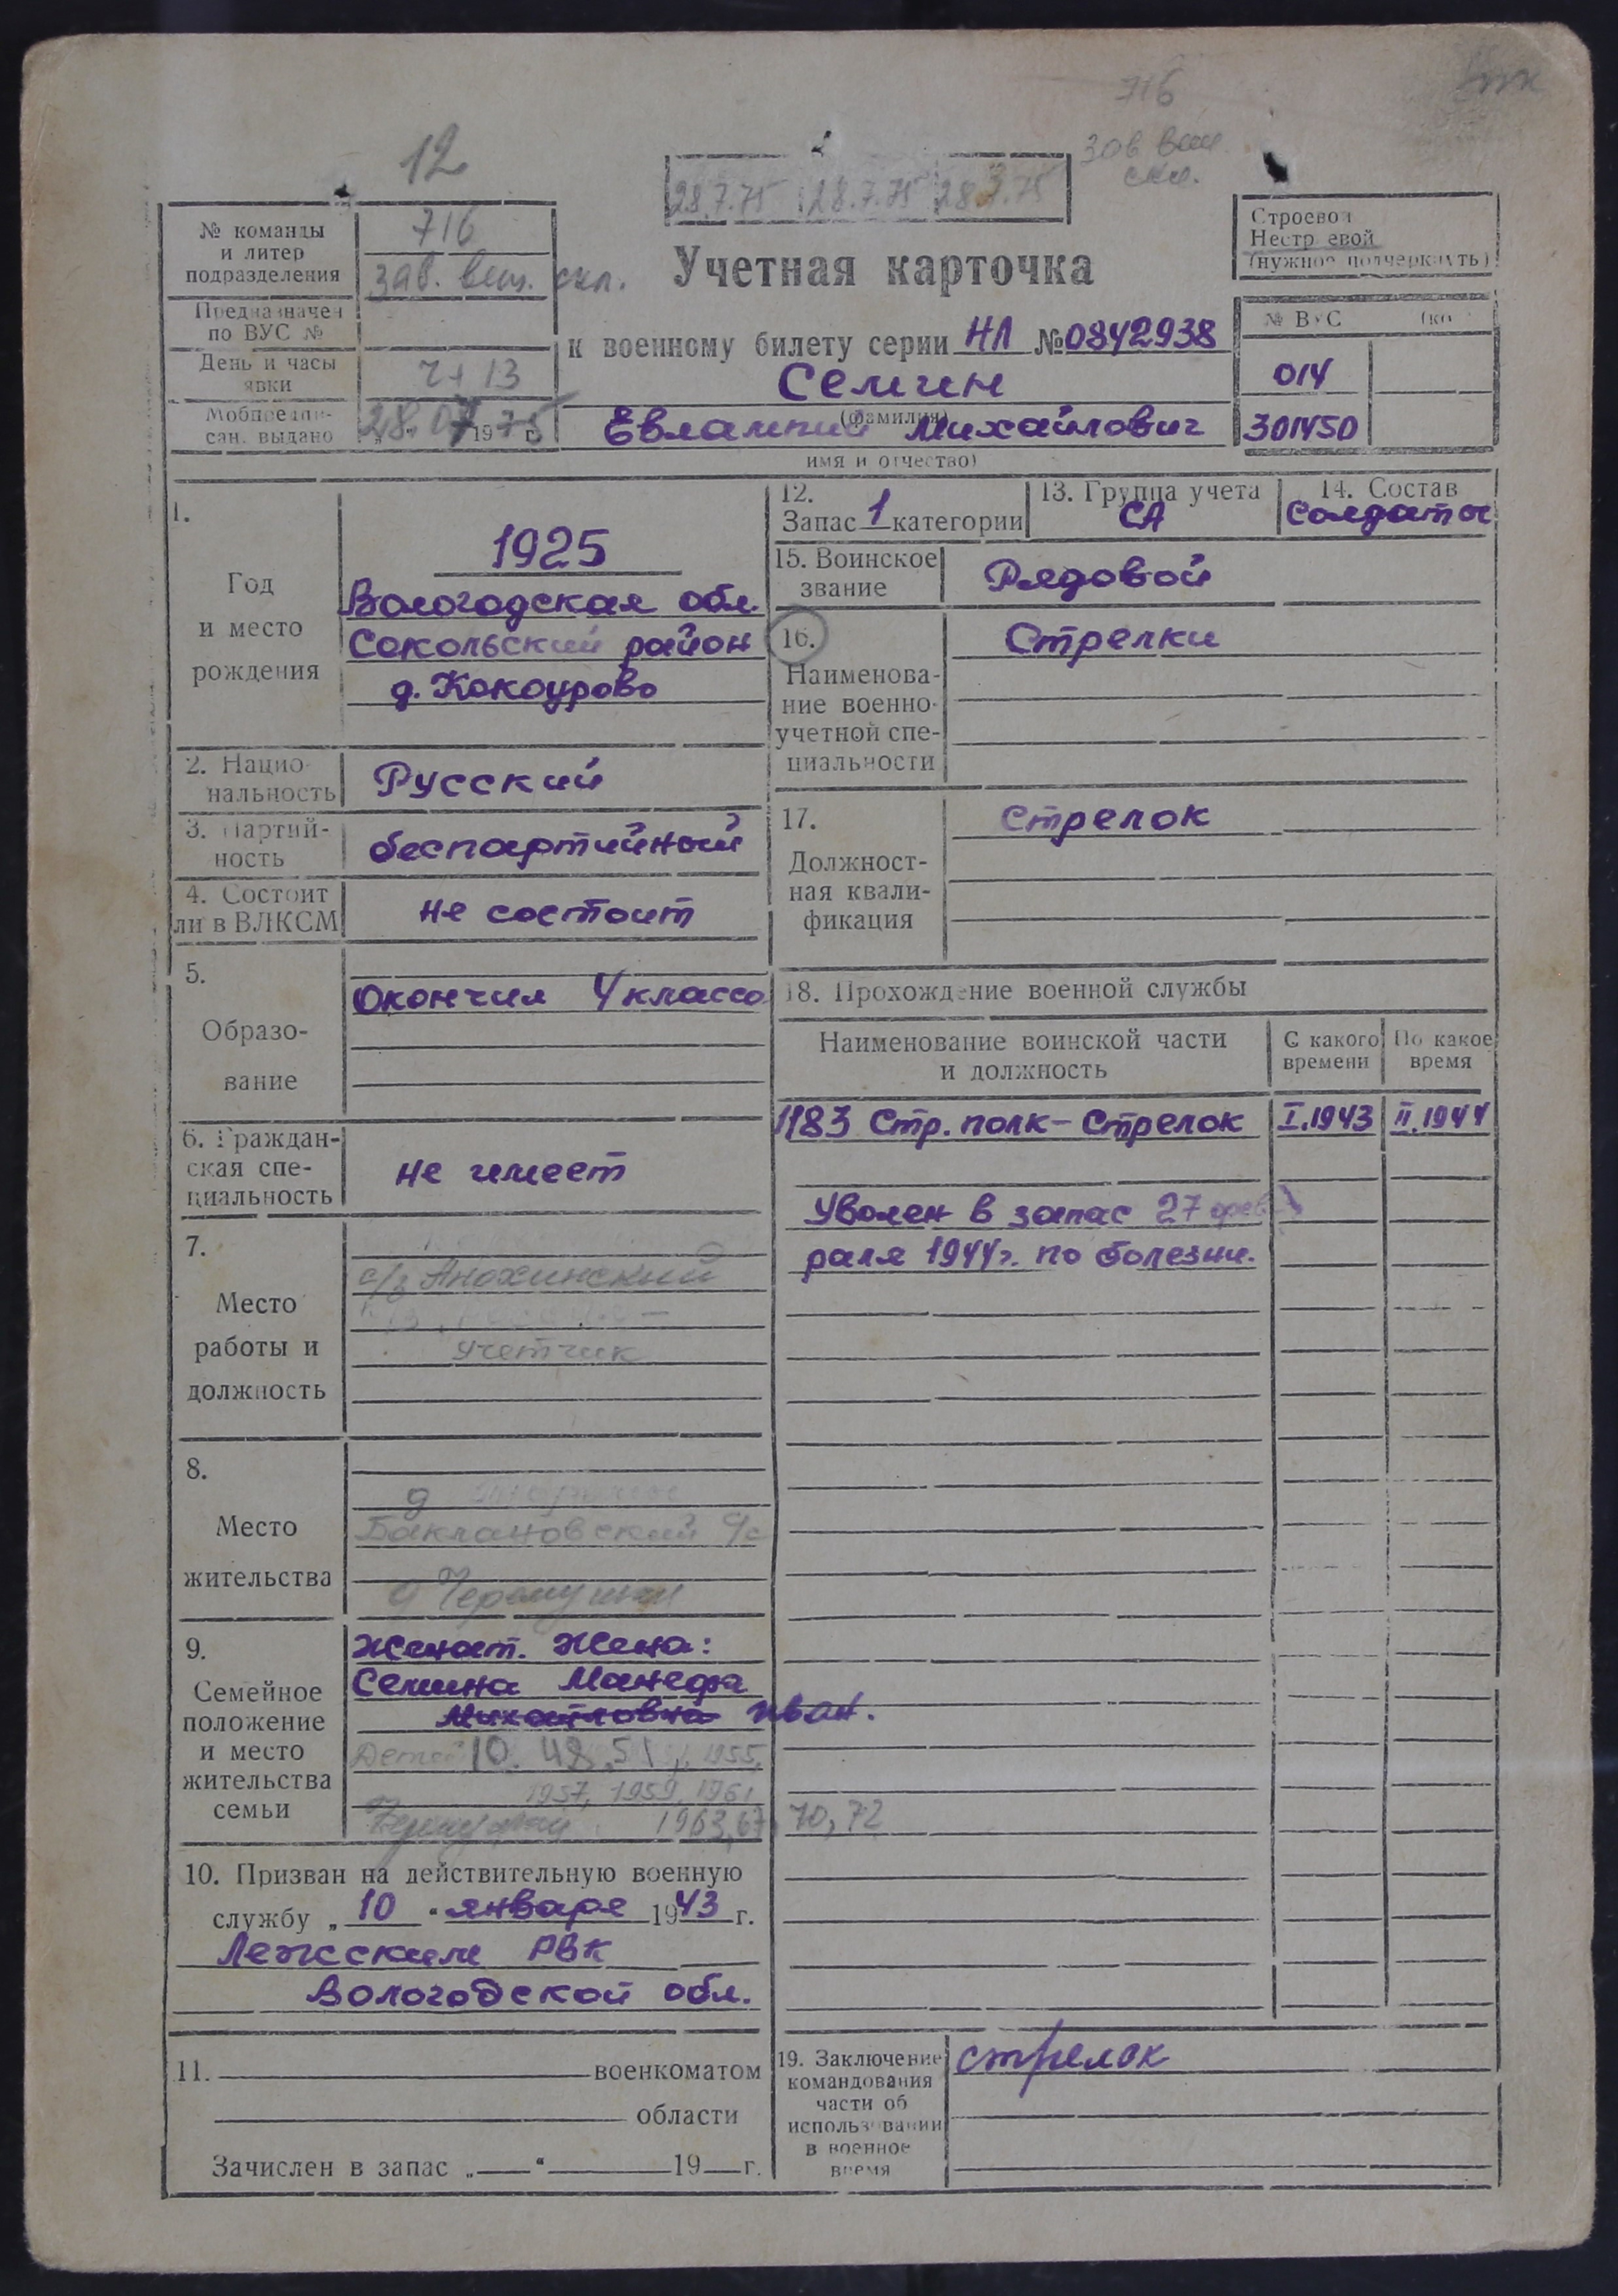 716
зав вещ.
скл.
12
28.7.75 28.7.75 28.3.75
№ команды
и литер
подразделения
716
зав. вещ. скл.
Предназначен
по ВУС №
День и часы
явки
Ч+13
Мобпредпи-
сан. выдано
28.07 1975 г.
Учетная карточка
к военному билету серии НЛ № 0842938
Семин
(фамилия)
Евлампий Михайлович
имя и отчество)
Строевой
Нестроевой
(нужное подчеркнуть)
№ ВУС
014
301450
1.
Год
и место
рождения
1925
Вологодская обл.
Сокольский район
д. Кокоурово
2. Нацио-
нальность
Русский
3. Партий-
ность
беспартийный
4. Состоит
ли в ВЛКСМ
не состоит
5.
Образо-
вание
Окончил 4 класса
6. Граждан-
ская спе-
циальность
не имеет
7.
Место
работы и
должность
с/з Анохинский
учетчик
8.
Место
жительства
д
Баклановский с/с
д Черемушки
9.
Семейное
положение
и место
жительства
семьи
Женат. Жена:
Семина Манефа
Михайловна Иван.
Дети 10. 49, 51, 1955,
1957, 1959, 1961
1963, 67, 70, 72
10. Призван на действительную военную
службу „ 10 “ января 1943 г.
Лежским РВК
Вологодской обл.
11. военкоматом
области
Зачислен в запас „ “ 19 г.
12.
Запас 1 категории
13. Группа учета
СА
14. Состав
Солдаты
15. Воинское
звание
Рядовой
16.
Наименова-
ние военно-
учетной спе-
циальности
Стрелки
17.
Должност-
ная квали-
фикация
Стрелок
18. Прохождение военной службы
Наименование воинской части
и должность
С какого
времени
По какое
время
1183 Стр. полк - Стрелок I.1943 II.1944
Уволен в запас 27 фев-
раля 1944г. по болезни.
19. Заключение
командования
части об
использовании
в военное
время
стрелок